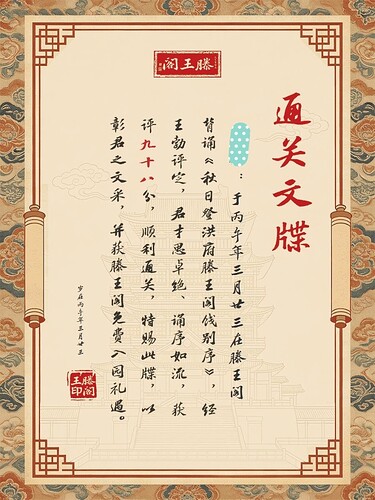 滕王阁
通关文牒
：于丙午年三月廿三在滕王阁
背诵《秋日登洪府滕王阁饯别序》，经
王勃评定，君才思卓绝、诵序如流，获
评九十八分，顺利通关，特赐此牒，以
彰君之文采，并获滕王阁免费入园礼遇。
岁在丙午年三月廿三
滕阁
王印